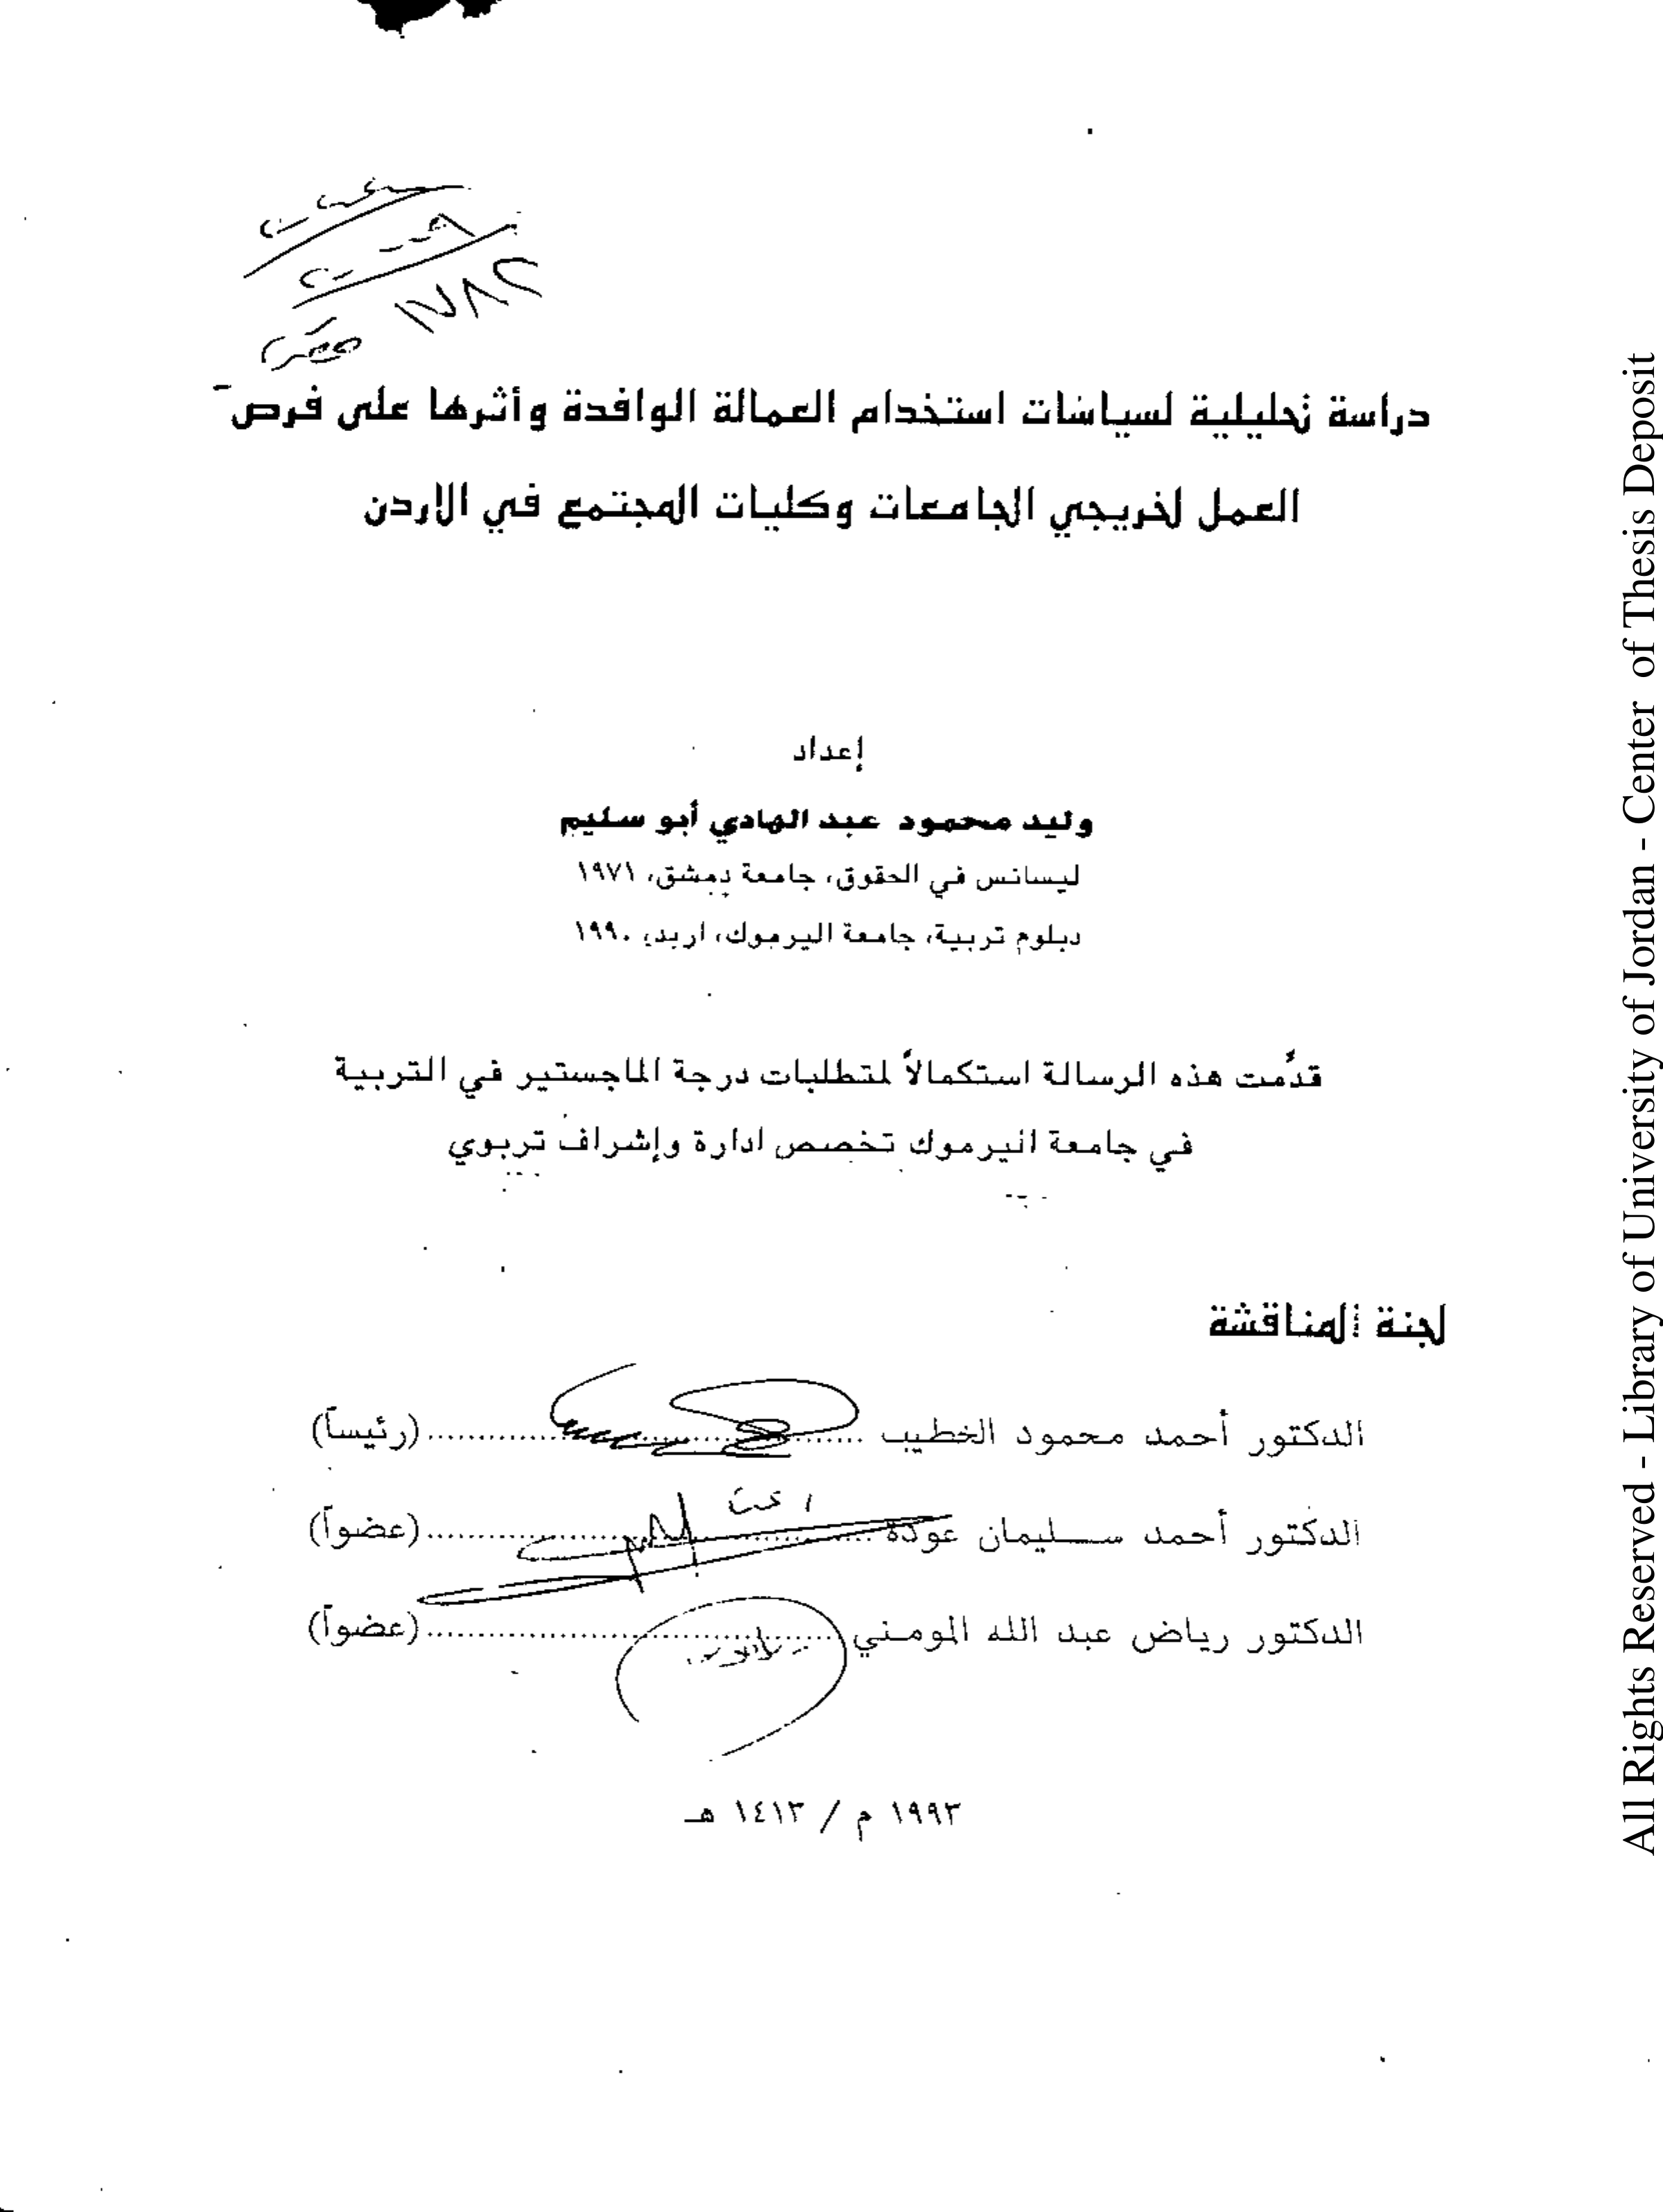 دراسة تحليلية لسياسات استخدام العمالة الوافدة وأثرها على فرص
العمل لخريجي الجامعات وكليات المجتمع في الاردن
إعداد
وليد محمود عبد الهادي أبو سليم
ليسانس في الحقوق، جامعة دمشق، ١٩٧١
دبلوم تربية، جامعة اليرموك، اربد، ١٩٩٠
قدُمت هذه الرسالة استكمالاً لمتطلبات درجة الماجستير في التربية
في جامعة اليرموك تخصص ادارة وإشراف تربوي
لجنة المناقشة
الدكتور أحمد محمود الخطيب ........ (رئيساً)
الدكتور أحمد سليمان عودة ........ (عضواً)
الدكتور رياض عبد الله المومني ........ (عضواً)
١٩٩٣ م / ١٤١٣ هـ
All Rights Reserved - Library of University of Jordan - Center of Thesis Deposit